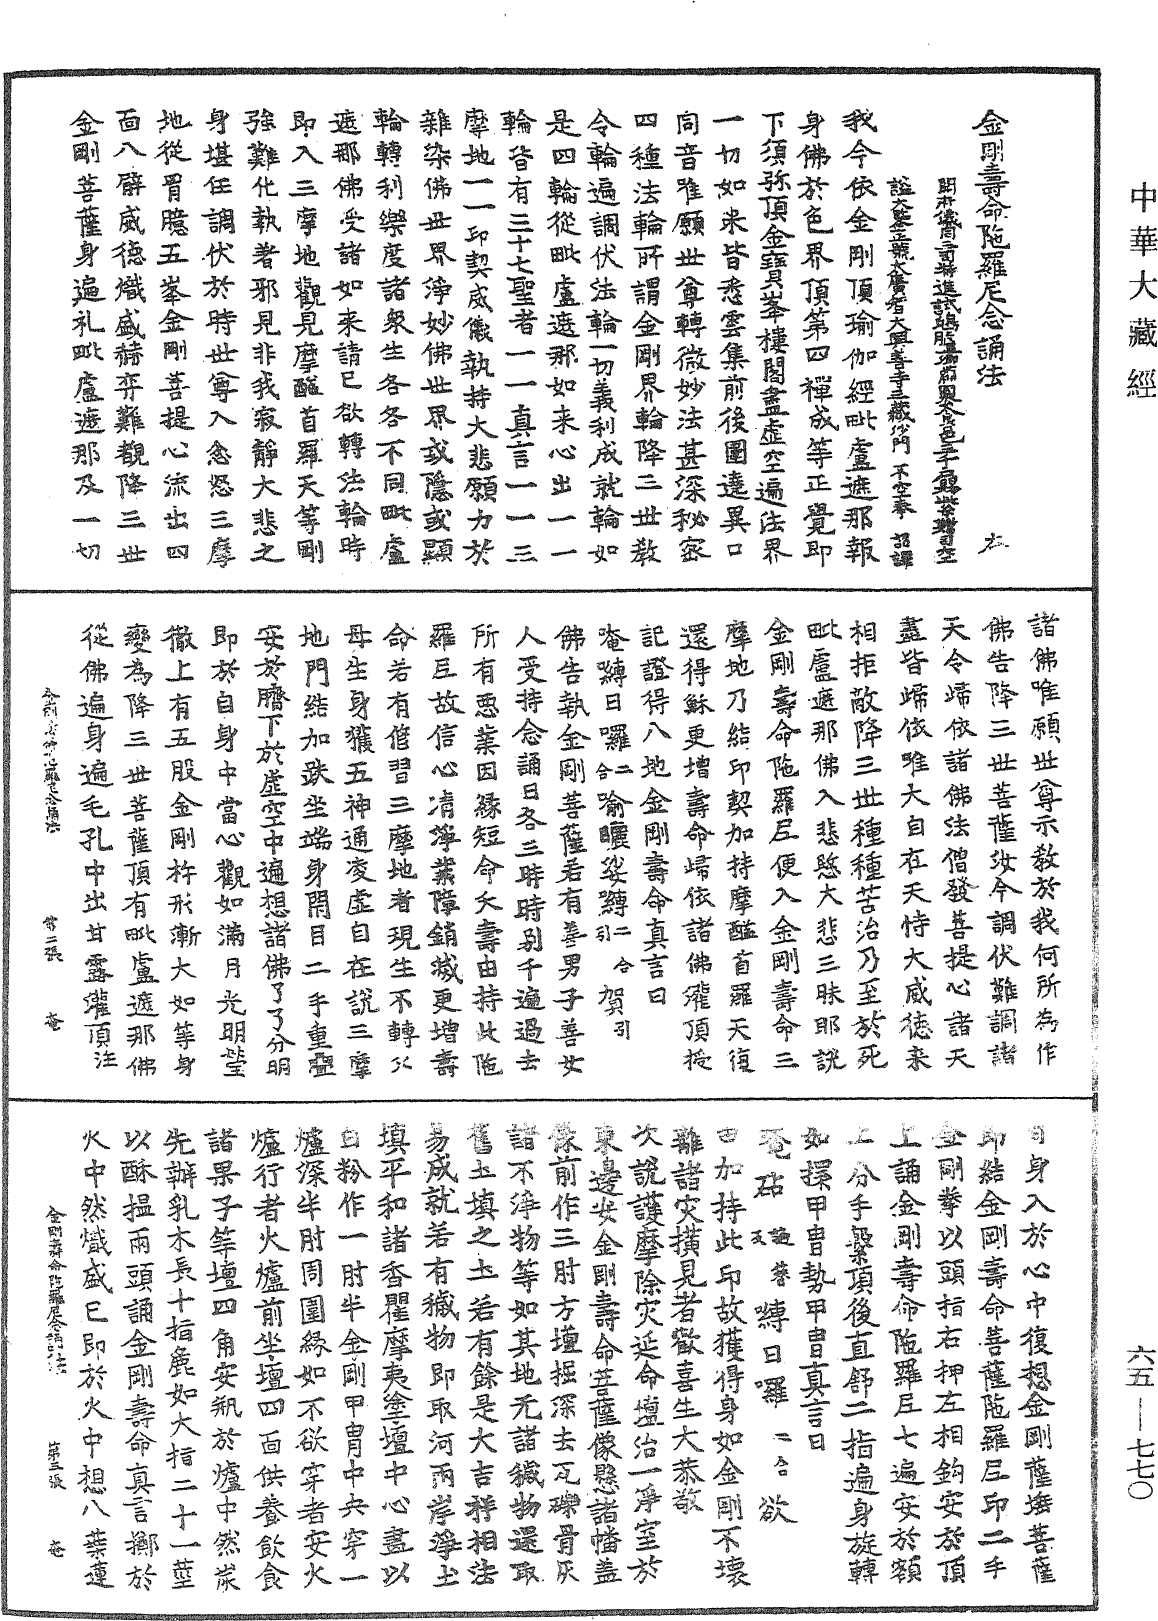 中華大藏經
金剛壽命陁羅尼念誦法
我今依金剛頂瑜伽經毗盧遮那報
身佛於色界頂第四禪成等正覺即
下須弥頂金寶峯樓閣盡虛空遍法界
一切如來皆悉雲集前後圍遶異口
同音唯願世尊轉微妙法甚深秘密
四種法輪所謂金剛界輪降三世教
令輪遍調伏法輪一切義利成就輪如
是四輪從毗盧遮那如來心出一一
輪皆有三十七聖者一一真言一一三
摩地一一印契威儀執持大悲願力於
雜染佛世界淨妙佛世界或隱或顯
輪轉利樂度諸衆生各各不同毗盧
遮那佛受諸如來請已欲轉法輪時
即入三摩地觀見摩醯首羅天等剛
強難化執著邪見非我寂靜大悲之
身堪任調伏於時世尊入忿怒三摩
地從胷臆五峯金剛菩提心流出四
面八臂威德熾盛赫弈難覩降三世
金剛菩薩身遍礼毗盧遮那及一切
諸佛唯願世尊示教於我何所為作
佛告降三世菩薩汝今調伏難調諸
天令歸依諸佛法僧發菩提心諸天
盡皆歸依唯大自在天恃大威德來
相拒敵降三世種種苦治乃至於死
毗盧遮那佛入悲愍大悲三昧耶說
金剛壽命陁羅尼便入金剛壽命三
摩地乃結印契加持摩醯首羅天復
還得穌更增壽命歸依諸佛灌頂授
記證得八地金剛壽命真言曰
唵嚩日囉二合喻曬娑嚩二合引賀引
佛告執金剛菩薩若有善男子善女
人受持念誦日各三時時別千遍過去
所有惡業因緣短命夭壽由持此陁
羅尼故信心清淨業障銷滅更增壽
命若有修習三摩地者現生不轉父
母生身獲五神通凌虛自在說三摩
地門結加趺坐端身閇目二手重疊
安於臍下於虛空中遍想諸佛了了分明
即於自身中當心觀如滿月光明瑩
徹上有五股金剛杵形漸大如等身
變為降三世菩薩頂有毗盧遮那佛
從佛遍身遍毛孔中出甘露灌頂注
第二張
自身入於心中復想金剛薩埵菩薩
即結金剛壽命菩薩陁羅尼印二手
金剛拳以頭指右押左相鈎安於頂
上誦金剛壽命陁羅尼七遍安於額
上分手繫頂後直舒二指遍身旋轉
如擐甲冑勢甲冑真言曰
嚩日囉二合欲
由加持此印故獲得身如金剛不壞
離諸灾橫見者歡喜生大恭敬
次說護摩除灾延命壇治一淨室於
東邊安金剛壽命菩薩像懸諸幡蓋
像前作三肘方壇掘深去瓦礫骨灰
諸不淨物等如其地无諸穢物還取
舊土填之土若有餘是大吉祥相法
易成就若有穢物即取河兩岸淨土
填平和諸香瞿摩夷塗壇中心畫以
白粉作一肘半金剛甲冑中央穿一
爐深半肘周圍緣如不欲穿者安火
爐行者火爐前坐壇四面供養飲食
諸果子等壇四角安瓶於爐中然炭
先辦乳木長十指麁如大指二十一莖
以酥搵兩頭誦金剛壽命真言擲於
火中然熾盛已即於火中想八葉蓮
金剛壽命陁羅尼念誦法
第三張
六五—七七〇